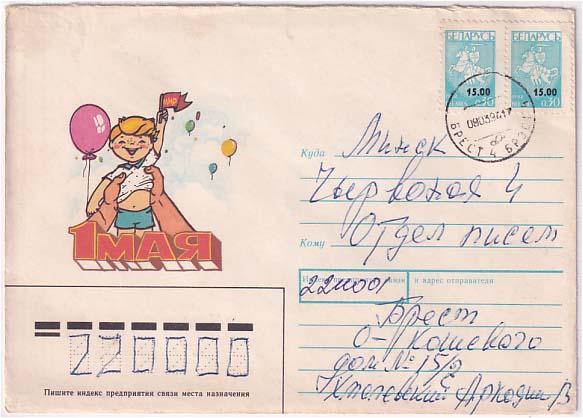 БЕЛАРУСЬ БЕЛАРУСЬ
15.00 15.00
0.30 0.30
БРЕСТ 4
МИР
1МАЯ
Куда Минск
Чырвоная 4
Кому Отдел писем
Индекс предприятия связи и адрес отправителя
224001
Брест
дом № 15/2
Аркадий В
220000
Пишите индекс предприятия связи места назначения